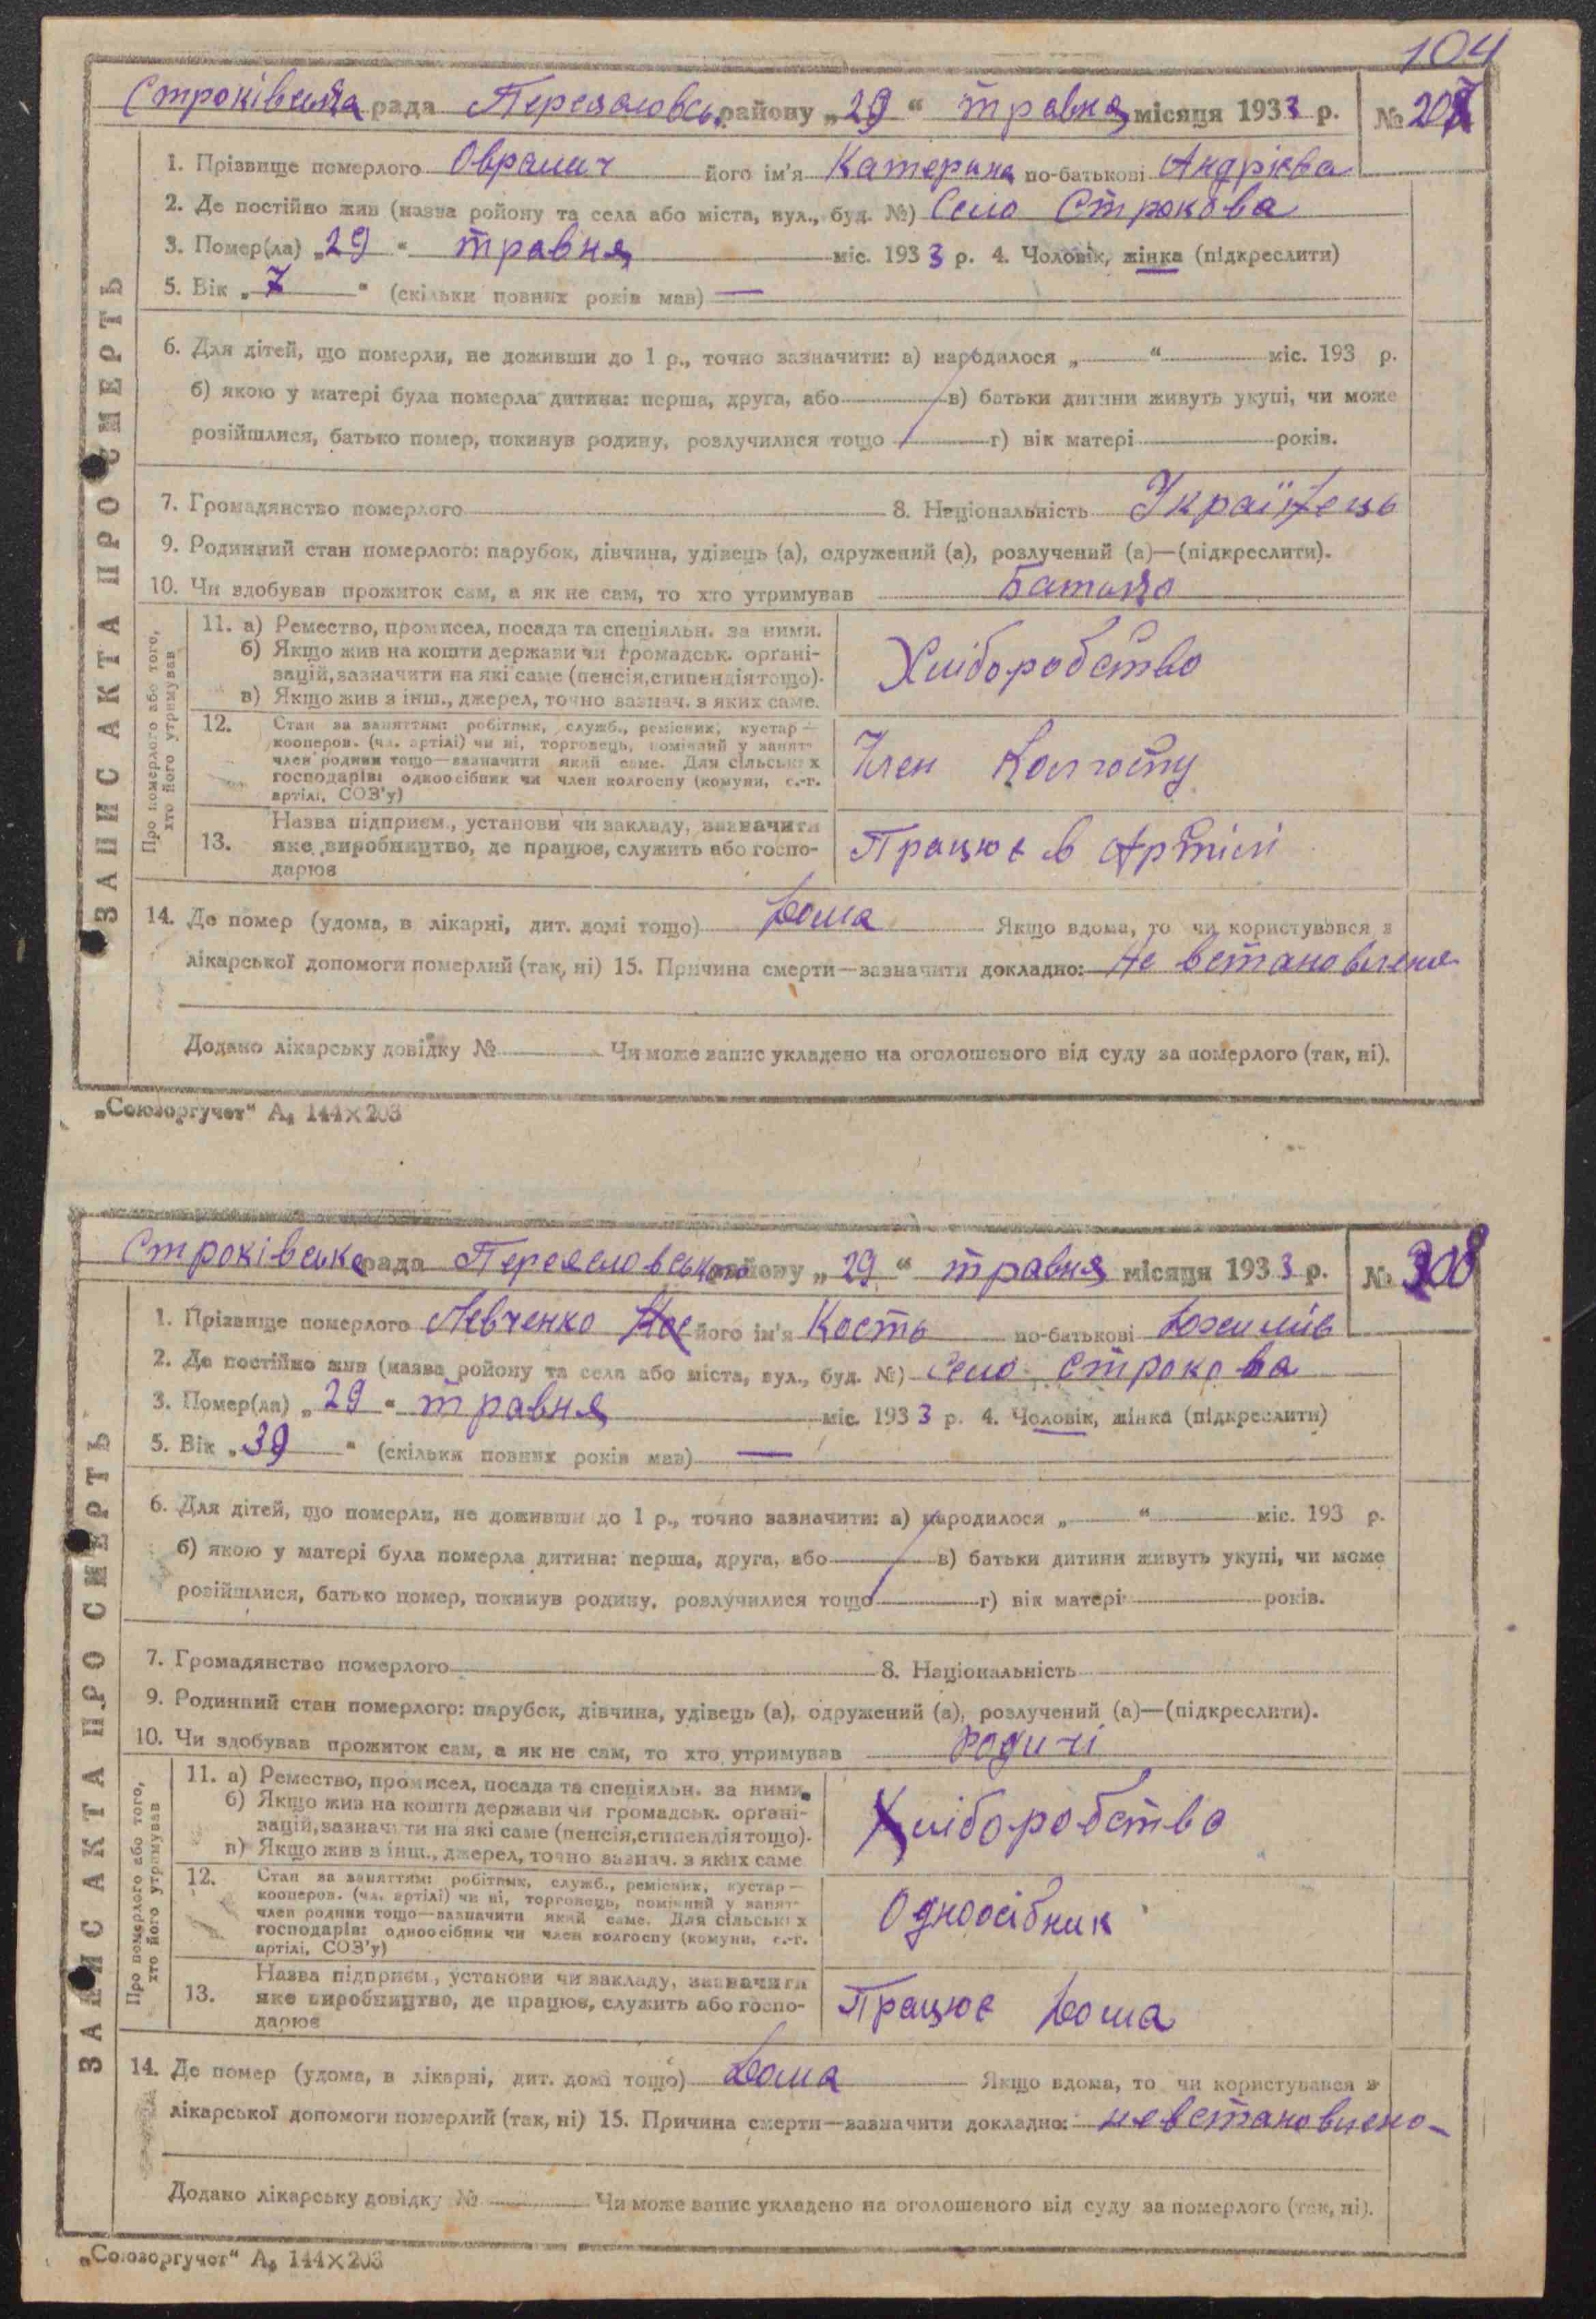 104
Строківська рада Переяславськ району „29“ травня місяця 1933 р. № 207
1. Прізвище померлого Оврамич його ім'я Катерина по-батькові Андрієва
2. Де постійно жив (назва ройону та села або міста, вул., буд. №) Село Строкова
3. Помер(ла) „29“ травня міс. 1933 р. 4. Чоловік, жінка (підкреслити)
5. Вік „7“ (скільки повних років мав) —
6. Для дітей, що померли, не доживши до 1 р., точно зазначити: а) народилося „ “ міс. 193 р.
б) якою у матері була померла дитина: перша, друга, або в) батьки дитини живуть укупі, чи може
розійшлися, батько помер, покинув родину, розлучилися тощо г) вік матері років.
7. Громадянство померлого 8. Національність Українець
9. Родинний стан померлого: парубок, дівчина, удівець (а), одружений (а), розлучений (а)—(підкреслити).
10. Чи здобував прожиток сам, а як не сам, то хто утримував Батько
ЗАПИС АКТА ПРО СМЕРТЬ
Про померлого або того, хто його утримував
11. а) Ремество, промисел, посада та спеціяльн. за ними.
б) Якщо жив на кошти держави чи громадськ. органі-
зацій, зазначити на які саме (пенсія, стипендія тощо).
в) Якщо жив з інш., джерел, точно зазнач. з яких саме.
Хліборобство
12. Стан за заняттям: робітник, служб., ремісник, кустар—
кооперов. (чл. артілі) чи ні, торговець, помічний у занят.
член родини тощо—зазначити який саме. Для сільських
господарів: одноосібник чи член колгоспу (комуни, с.-г.
артілі, СОЗ'у)
Член Колгоспу
13. Назва підприєм., установи чи закладу, зазначити
яке виробництво, де працює, служить або госпо-
дарює
Працює в Артілі
14. Де помер (удома, в лікарні, дит. домі тощо) Дома Якщо вдома, то чи користувався з
лікарської допомоги померлий (так, ні) 15. Причина смерти—зазначити докладно: Не встановлене
Додано лікарську довідку № Чи може запис укладено на оголошеного від суду за померлого (так, ні).
„Союзоргучет“ А₅ 144×203
Строківська рада Переяславського району „29“ травня місяця 1933 р. № 208
1. Прізвище померлого Левченко його ім'я Кость по-батькові
2. Де постійно жив (назва ройону та села або міста, вул., буд. №) Село Строкова
3. Помер(ла) „29“ травня міс. 1933 р. 4. Чоловік, жінка (підкреслити)
5. Вік „39“ (скільки повних років мав) —
6. Для дітей, що померли, не доживши до 1 р., точно зазначити: а) народилося „ “ міс. 193 р.
б) якою у матері була померла дитина: перша, друга, або в) батьки дитини живуть укупі, чи може
розійшлися, батько помер, покинув родину, розлучилися тощо г) вік матері років.
7. Громадянство померлого 8. Національність
9. Родинний стан померлого: парубок, дівчина, удівець (а), одружений (а), розлучений (а)—(підкреслити).
10. Чи здобував прожиток сам, а як не сам, то хто утримував родичі
ЗАПИС АКТА ПРО СМЕРТЬ
Про померлого або того, хто його утримував
11. а) Ремество, промисел, посада та спеціяльн. за ними.
б) Якщо жив на кошти держави чи громадськ. органі-
зацій, зазначити на які саме (пенсія, стипендія тощо).
в) Якщо жив з інш., джерел, точно зазнач. з яких саме
Хліборобство
12. Стан за заняттям: робітник, служб., ремісник, кустар—
кооперов. (чл. артілі) чи ні, торговець, помічний у занят.
член родини тощо—зазначити який саме. Для сільських
господарів: одноосібник чи член колгоспу (комуни, с.-г.
артілі, СОЗ'у)
Одноосібник
13. Назва підприєм., установи чи закладу, зазначити
яке виробництво, де працює, служить або госпо-
дарює
Працює Дома
14. Де помер (удома, в лікарні, дит. домі тощо) Дома Якщо вдома, то чи користувався з
лікарської допомоги померлий (так, ні) 15. Причина смерти—зазначити докладно: невстановлено
Додано лікарську довідку № Чи може запис укладено на оголошеного від суду за померлого (так, ні).
„Союзоргучет“ А₅ 144×203